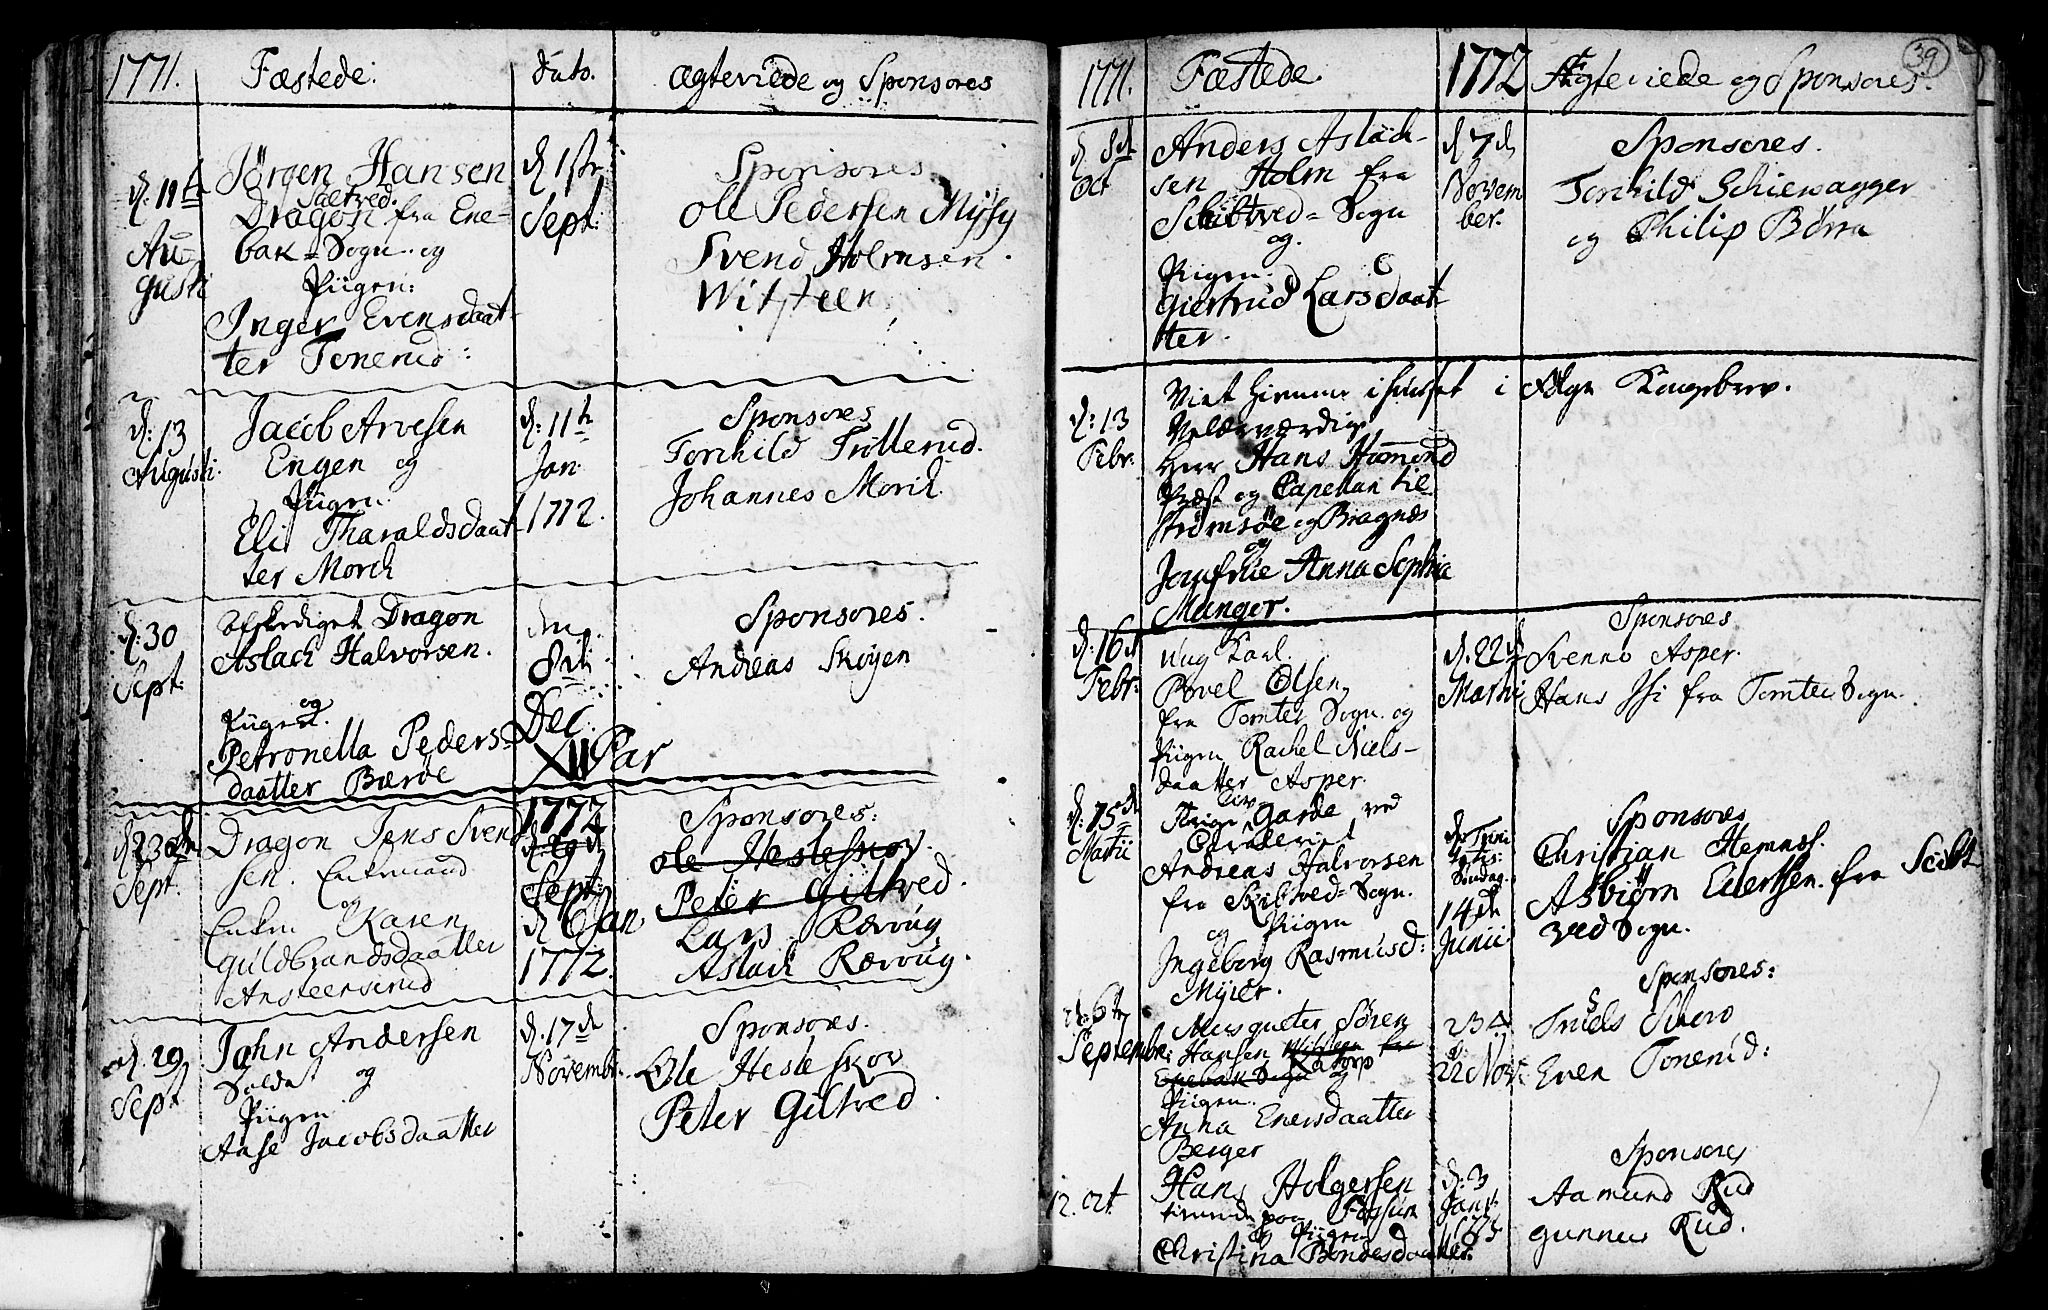 1771. Fæstede: dato. Ægteviede og Sponsores
d. 11te Augusti
Jørgen Hansen
Saltved.
Dragon fra Ene-
bak-Sogn og
Piigen:
Inger Evensdaat-
ter Tonerud:
d. 1ste Sept:
Sponsores
Ole Pedersen Mysy
Svend Holmsen.
Witsteen
d: 13 Augusti.
Jacob Arvesen
Engen og
Piigen
Eli Tharaldsdaat
ter Morck
d: 11te Jan. 1772.
Sponsores
Torchild Trollerud.
Johannes Morck
d: 30 Sept:
afskediget Dragon
Aslach Halvorsen.
og
Piigen.
Petronella Peders-
daatter Bærøe
den 8de Dec.
XII Par
Sponsores.
Andreas Skoyen
d. 23de Sept.
Dragon Jens Svend
sen. Enkemand
og
Enken Karen
Guldbrandsdaatter
Ansteensrud
1772
d. 29de Sept:
d. 6 Jan
1772.
Sponsores:
Ole Hesleskov.
Peter Giltved.
Lars Rævoug
Aslach Rævoug.
d. 29 Sept
John Andersen
Soldat og
Piigen
Aase Jacobsdaatter
d. 17de Novembr.
Sponsores.
Ole Hesleskov
Peter Giltved.
39
1771. Fæstede. 1772 Ægteviede og Sponsores.
d. 8de Oct
Anders Aslach-
sen Holm fra
Schibtved-Sogn
og.
Piigen.
Giertrud Larsdaat
ter.
d. 7de November.
Sponsores.
Torchild Schiewagger
og Philip Børra
d: 13 Febr:
Viet hiemme i huuset i Følge Kongebrev.
Velærværdige
Herr Hans Hammond
Præst og Capellan til
Strømsøe og Bragnæs
og
Jomfrue Anna Sophia
Munger.
d. 16de Febr:
Ung Karl.
Povel Olsen
fra Tomter Sogn. og
Piigen Rachel Niels-
daatter Asper.
d. 22de Martii
Sponsores
Svenno Asper.
Hans Isi fra Tomter Sogn.
d: 15de Martii
Liv
Garde ved
Andreas Halvorsen
fra Skibtved-Sogn.
og Piigen
Ingeborg Rasmusd:
Myier.
Søndag.
14de Junii
Sponsores
Christian Hemnes.
Asbiørn Edertsen. fra Scibt
ved Sogn.
d. 6te September:
Musqueter Søren
Hansen Witsteen fra
Ratorp
Enebak Sogn og
Piigen.
Anna Eversdaatter
Berger
22 Nov:
Sponsores:
Truels Skoro
Even Tonerud:
12. Oct.
Hans Holgersen
tienende paa Fossum
og Piigen
Christina Bendesdaatter.
d: 3 Janr:
Sponsores
Aamund Rud
Gunner Rud.